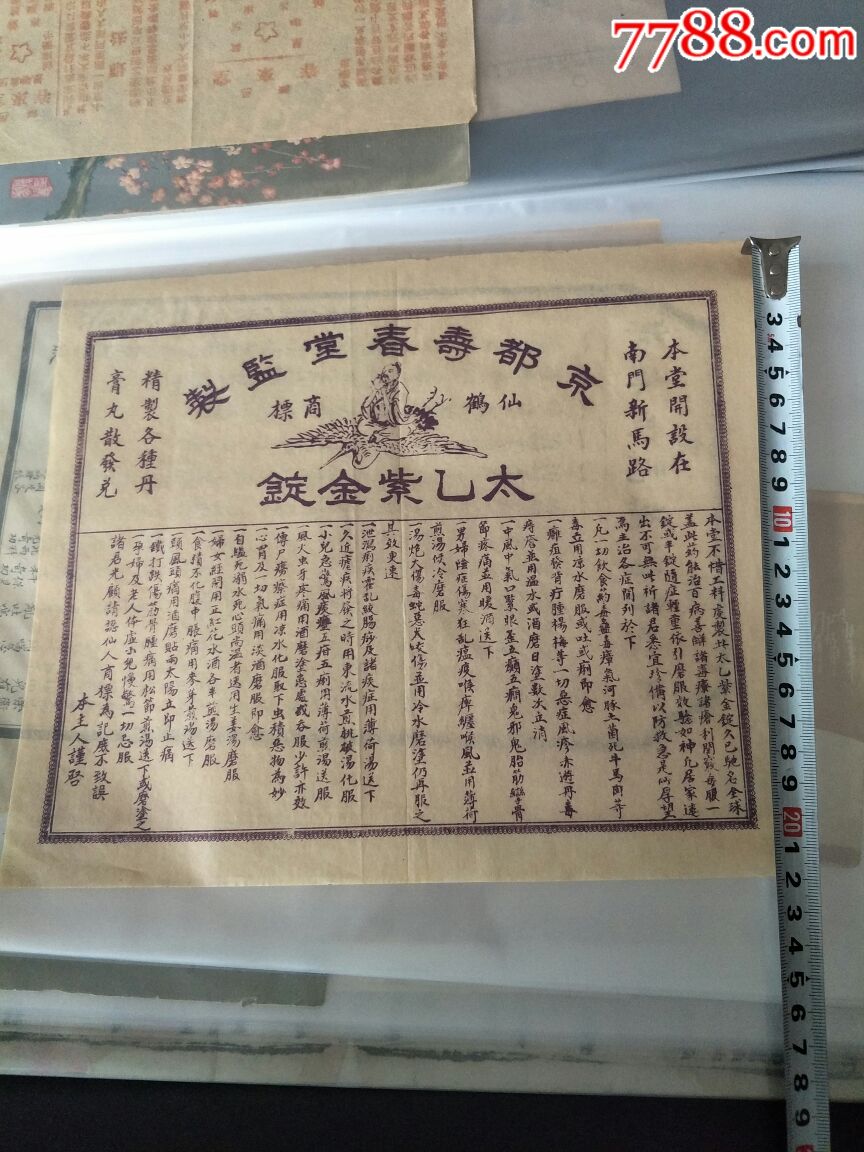 7788.com
京都壽春堂監製
本堂開設在
南門新馬路
仙鶴
商標
精製各種丹
膏丸散發兑
太乚紫金錠
本堂不惜工料虔製此太乚紫金錠久已馳名全球
蓋此葯能治百病善解諸毒療諸瘡利関竅每服一
錠或半錠隨症輕重依引磨服效驗如神凢居家遠
出不可無此祈諸君悉宜珍備以防救急是所厚望
焉主治各症開列於下
一凢一切飲食葯毒蠱毒瘴氣河豚土菌死牛馬肉等
毒立用凉水磨服或吐或痢即愈
一癰疽發背疔腫楊梅等一切惡症風疹赤遊丹毒
痔瘡並用温水或酒磨日塗數次立消
一中風中氣口緊眼歪五癲五癇鬼邪鬼胎筋攣骨
節疼痛並用暖酒送下
一男婦陰症傷寒狂乱瘟疫喉痺纏喉風並用薄荷
煎湯候冷磨服
一湯炮火傷毒蛇惡犬咬傷並用冷水磨塗仍再服之
其效更速
一泄瀉痢疾霍乱絞腸痧及諸疾症用薄荷湯送下
一久近瘧疾将發之時用東流水煎桃枝湯化服
一小兒急驚風疾五疳五痢用薄荷煎湯送服
一風火虫牙疼痛用酒磨塗患處或吞服少許亦效
一傳尸癆瘵症用凉水化服取下虫積惡物為妙
一心胃及一切氣痛用淡酒磨服即愈
一自縊死溺水死心頭尚温者送用生姜湯磨服
一婦女經閉用正紅花水酒各半煎湯磨服
一食積不化腹中脹痛用麥芽煎湯送下
一頭風頭痛用酒磨貼兩太陽立即止痛
一鐵打跌傷筋骨腫痛用松節煎湯送下或磨塗之
一孕婦及老人体虚小兒慢驚一切忌服
諸君光顧請認仙人商標為記庶不致誤
本主人謹啓